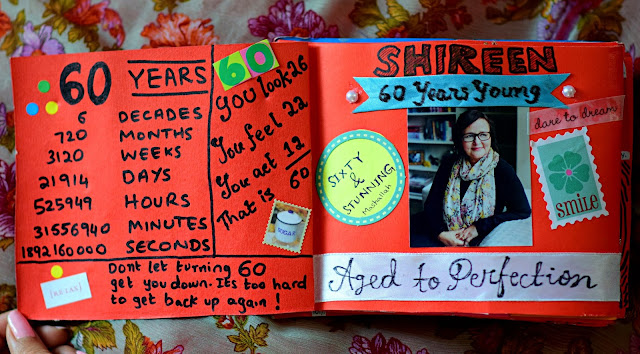 60 YEARS
6 DECADES
720 MONTHS
3120 WEEKS
21914 DAYS
525949 HOURS
31556940 MINUTES
1892160000 SECONDS
60
You look 26
You feel 22
You act 12
That is 60
SUGAR
RELAX
Dont let turning 60
get you down. It's too hard
to get back up again!
SHIREEN
60 Years Young
dare to dream
SIXTY
&
STUNNING
Mashallah
SMILE
Aged to Perfection